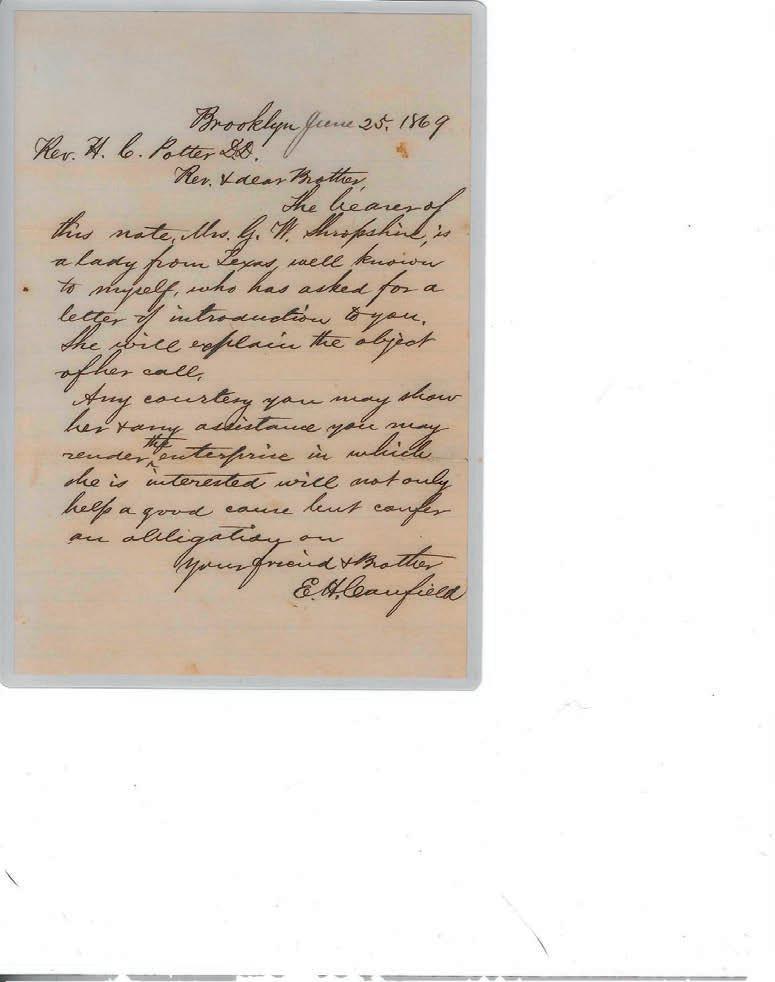 Brooklyn June 25, 1869
Rev. H. C. Potter D.D.
Rev. & dear Brother,
The bearer of
this note, Mrs. G. W. Shropshire, is
a lady from Texas, well known
to myself, who has asked for a
letter of introduction to you.
She will explain the object
of her call.
Any courtesy you may show
her & any assistance you may
render the enterprise in which
she is interested will not only
help a good cause but confer
an obligation on
Your friend & Brother
E. H. Canfield